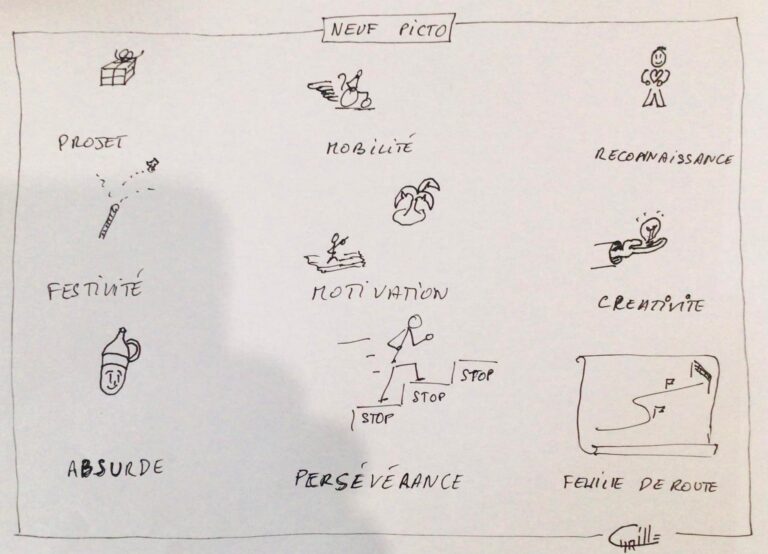 NEUF PICTO
PROJET
MOBILITÉ
RECONNAISSANCE
FESTIVITÉ
MOTIVATION
CREATIVITE
STOP
STOP
STOP
ABSURDE
PERSÉVÉRANCE
FEUILLE DE ROUTE